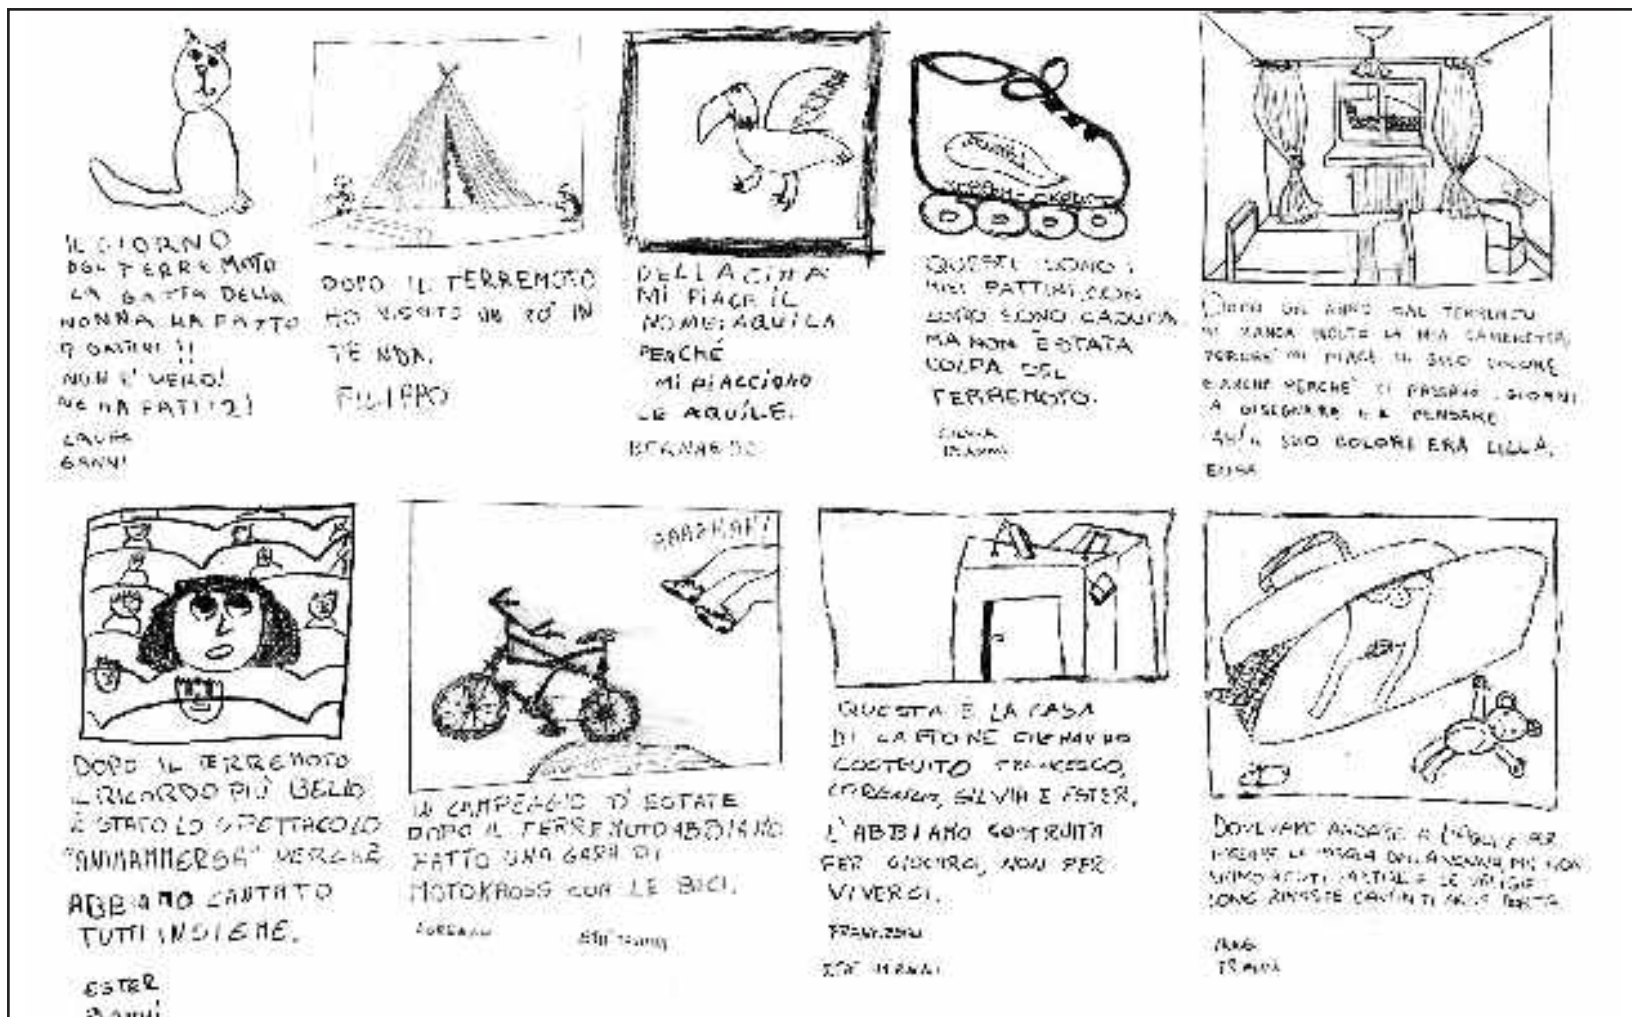 IL GIORNO
DEL TERREMOTO
LA GATTA DELLA
NONNA HA FATTO
GATTINI!!
NON E' VERO!
NE HA FATTI 2!
LAURA
6 ANNI
DOPO IL TERREMOTO
HO VISSUTO UN PO' IN
TENDA.
FILIPPO
DELLA CINA
MI PIACE IL
NOME: AQUILA
PERCHÉ
MI PIACCIONO
LE AQUILE.
BERNARDO
QUESTI SONO I
MIEI PATTINI, CON
LORO SONO CADUTA
MA NON È STATA
COLPA DEL
TERREMOTO.
SILVIA
ANNI
DOPO UN ANNO DAL TERREMOTO
MI MANCA MOLTO LA MIA CAMERETTA,
PERCHÉ MI PIACE IL SUO COLORE
E ANCHE PERCHÉ CI PASSAVO I GIORNI
A DISEGNARE E A PENSARE.
AH! IL SUO COLORE ERA LILLA.
ELISA
DOPO IL TERREMOTO
IL RICORDO PIÙ BELLO
È STATO LO SPETTACOLO
"ANIMAMMERSA" PERCHÉ
ABBIAMO CANTATO
TUTTI INSIEME.
ESTER
ANNI
AAAAHAH!
IN CAMPEGGIO D'ESTATE
DOPO IL TERREMOTO ABBIAMO
FATTO UNA GARA DI
MOTOKROSS CON LE BICI.
LORENZO
QUESTA È LA CASA
DI CARTONE CHE HANNO
COSTRUITO FRANCESCO,
LORENZO, SILVIA E ESTER.
L'ABBIAMO COSTRUITA
PER GIOCARCI, NON PER
VIVERCI.
FRANCESCO
ANNI
DOVEVAMO ANDARE A PER
LA DALLA NONNA, MA NON
SIAMO E LE VALIGIE
SONO RIMASTE DAVANTI ALLA PORTA
ANNI